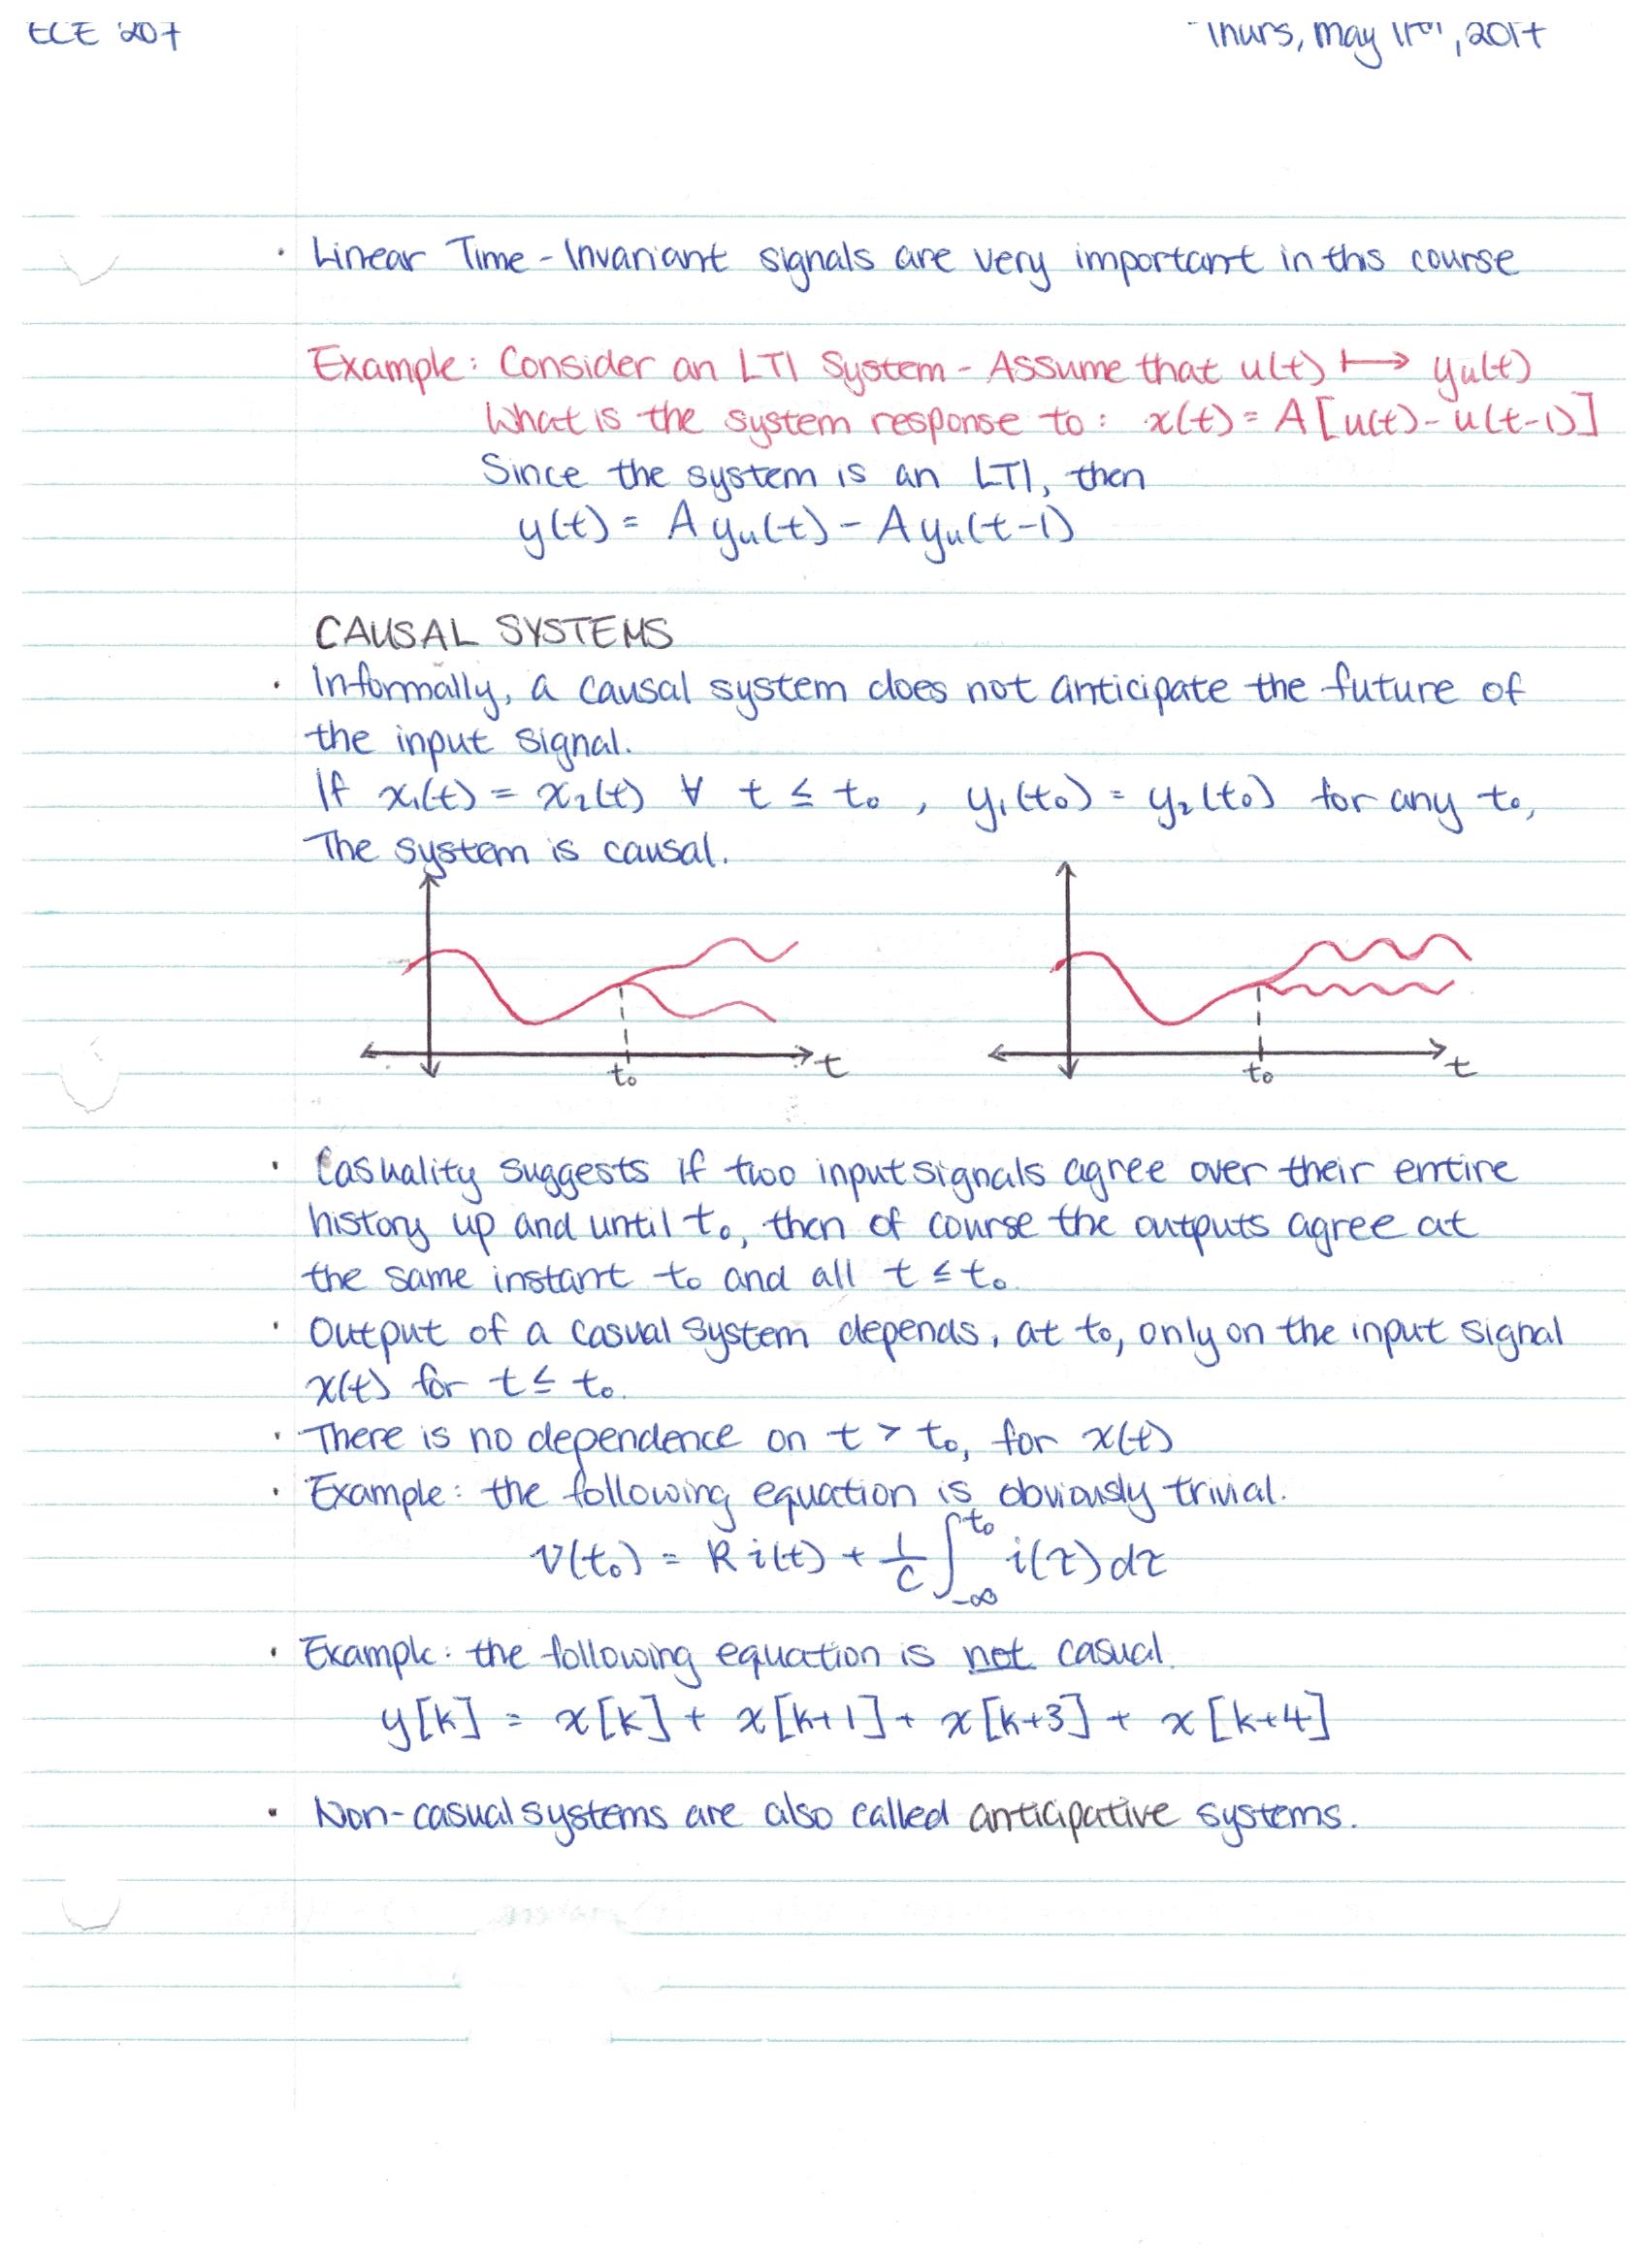 ECE 207
Thurs, May 11th, 2017
· Linear Time-Invariant signals are very important in this course
Example: Consider an LTI System - Assume that u(t) ⟼ yu(t)
What is the system response to: x(t) = A[u(t) - u(t-1)]
Since the system is an LTI, then
y(t) = A yu(t) - A yu(t-1)
CAUSAL SYSTEMS
· Informally, a causal system does not anticipate the future of
the input signal.
If x₁(t) = x₂(t) ∀ t ≤ t₀, y₁(t₀) = y₂(t₀) for any t₀,
The system is causal.
t₀ t
t₀ t
· Casuality suggests if two input signals agree over their entire
history up and until t₀, then of course the outputs agree at
the same instant t₀ and all t ≤ t₀.
· Output of a casual system depends, at t₀, only on the input signal
x(t) for t ≤ t₀.
· There is no dependence on t > t₀, for x(t)
· Example: the following equation is obviously trivial.
v(t₀) = R i(t) + 1/C ∫_{-∞}^{t₀} i(τ) dτ
· Example: the following equation is not casual.
y[k] = x[k] + x[k+1] + x[k+3] + x[k+4]
· Non-casual systems are also called anticipative systems.